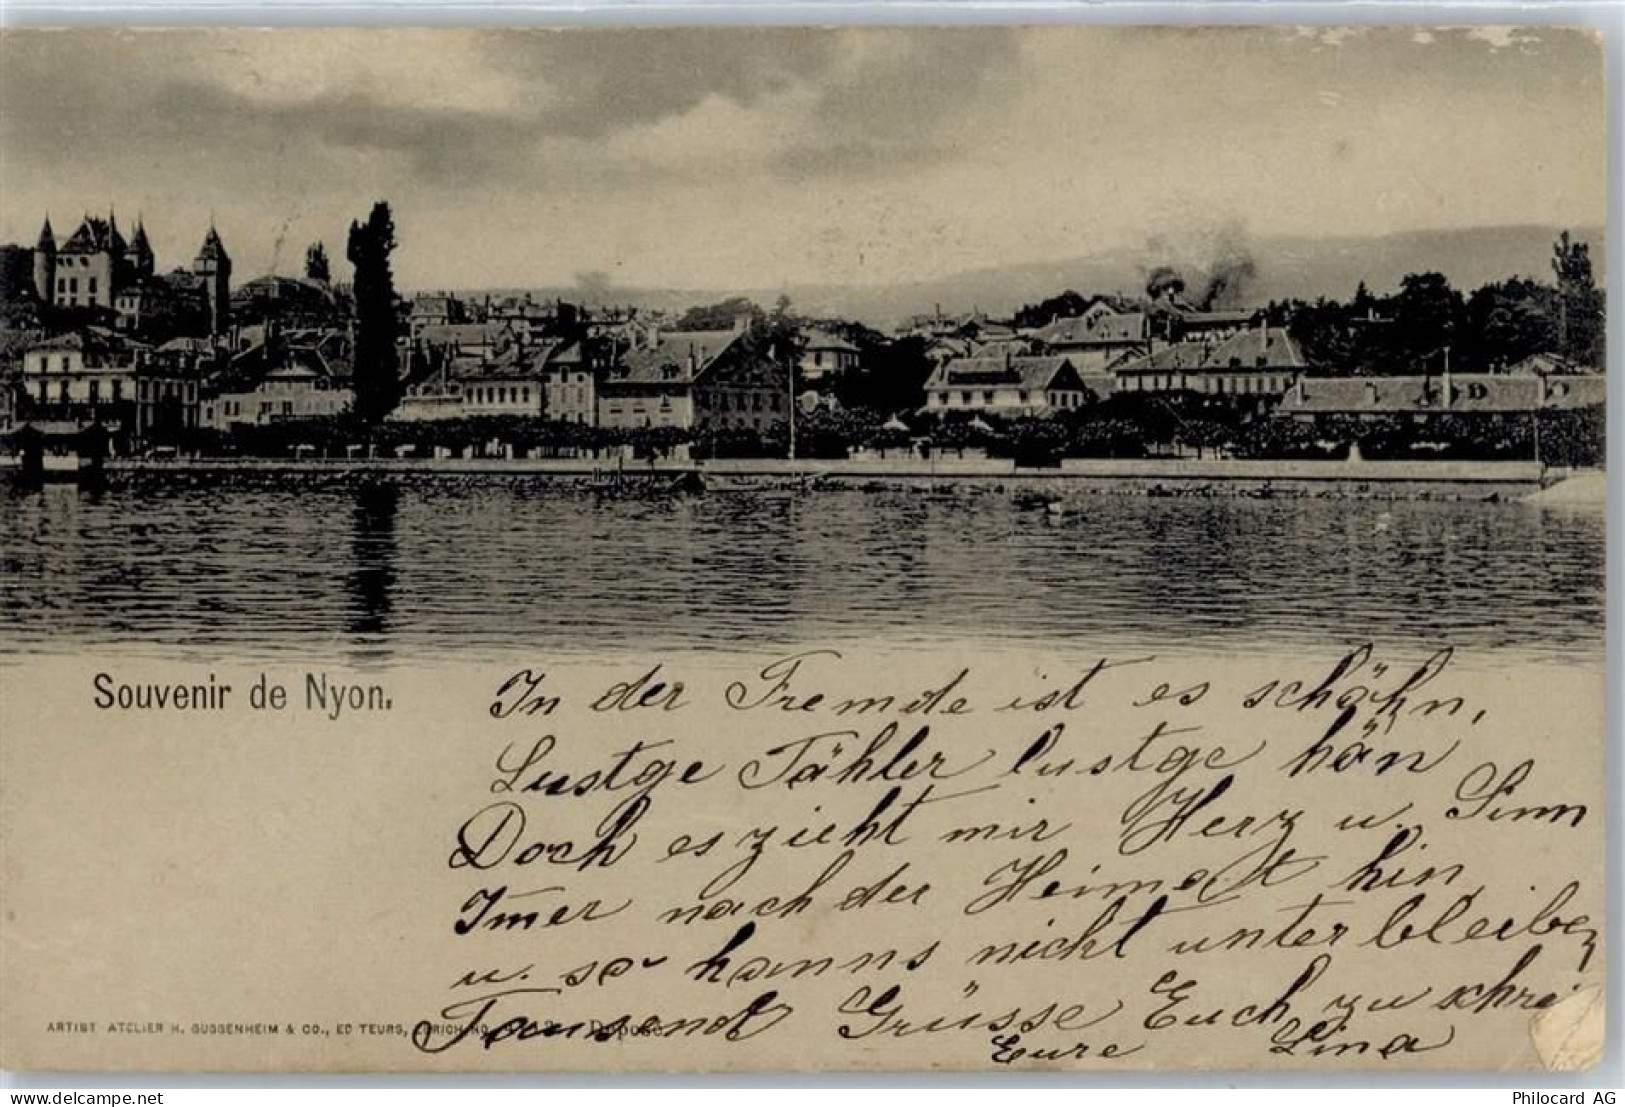 Souvenir de Nyon.
In der Fremde ist es schöhn,
Lustge Tähler lustge hön
Doch es zieht mir Herz u. Sinn
Imer nach der Heimat hin
u. so kanns nicht unter bleiben
Tausend Grüsse Euch zu schrei
Eure Lina
ARTIST ATELIER H. GUGGENHEIM & CO., EDITEURS, ZÜRICH NO. Déposé.
www.delcampe.net
Philocard AG